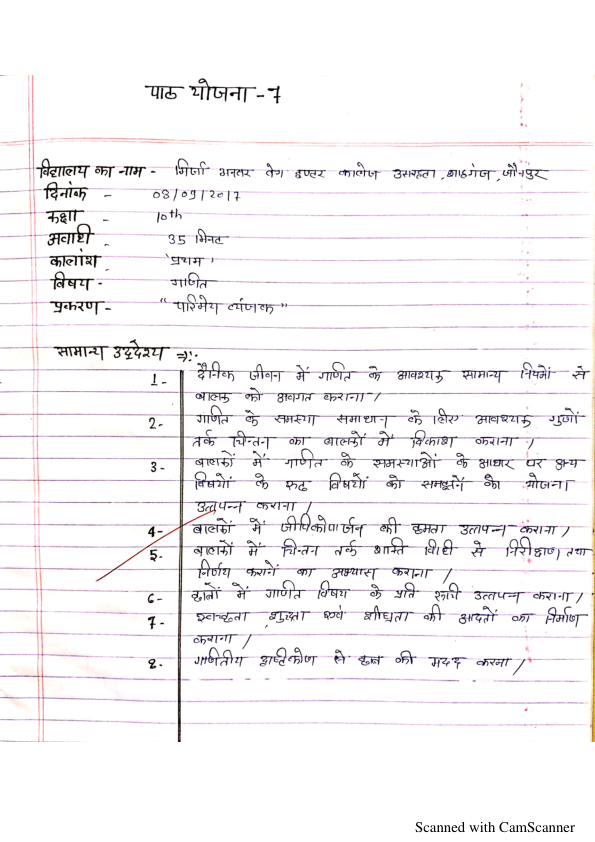 पाठ योजना - 7
विद्यालय का नाम - मिर्जा अनवर बेग इण्टर कालेज उसरहटा, शाहगंज, जौनपुर
दिनांक - 08/09/2017
कक्षा - 10th
अवधी - 35 मिनट
कालांश - 'प्रथम'
विषय - गणित
प्रकरण - "परिमेय व्यंजक"
सामान्य उद्देश्य ⇒:-
1- दैनिक जीवन में गणित के आवश्यक सामान्य नियमों से
बालक को अवगत कराना /
2- गणित के समस्या समाधान के लिए आवश्यक गुणों
तर्क चिन्तन का बालकों में विकाश कराना /
3- बालकों में गणित के समस्याओं के आधार पर अन्य
विषयों के विषयों को समझने की योजना
उत्तपन्न कराना /
4- बालकों में जीविकोपार्जन की क्षमता उत्तपन्न कराना /
5- बालकों में चिन्तन तर्क शक्ति विधी से निरीक्षण तथा
निर्णय करानें का अभ्यास कराना /
6- छात्रों में गणित विषय के प्रति रूची उत्तपन्न कराना /
7- स्वच्छता, शुद्धता एवं शीघ्रता की आदतों का निर्माण
कराना /
8. गणितीय दृष्टिकोण से छात्र की मदद करना /
Scanned with CamScanner